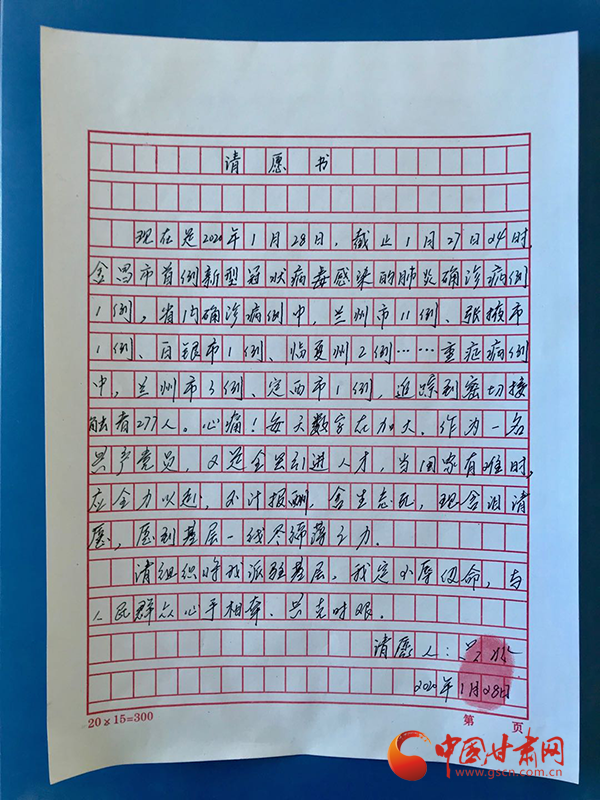 请愿书
现在是2020年1月28日，截止1月27日24时，
金昌市首例新型冠状病毒感染的肺炎确诊病例
1例，省内确诊病例中，兰州市11例、张掖市
1例、白银市1例、临夏州2例……重症病例
中，兰州市3例、定西市1例，追踪到密切接
触者277人。心痛！每天数字在加大。作为一名
共产党员，又是金昌引进人才，当国家有难时，
应全力以赴，不计报酬，舍生忘死，现含泪请
愿，愿到基层一线尽绵薄之力.
请组织将我派驻基层，我定不辱使命，与
人民群众心手相牵、共克时艰。
请愿人：
2020年1月28日
20×15=300 第 页
中国甘肃网
www.gscn.com.cn